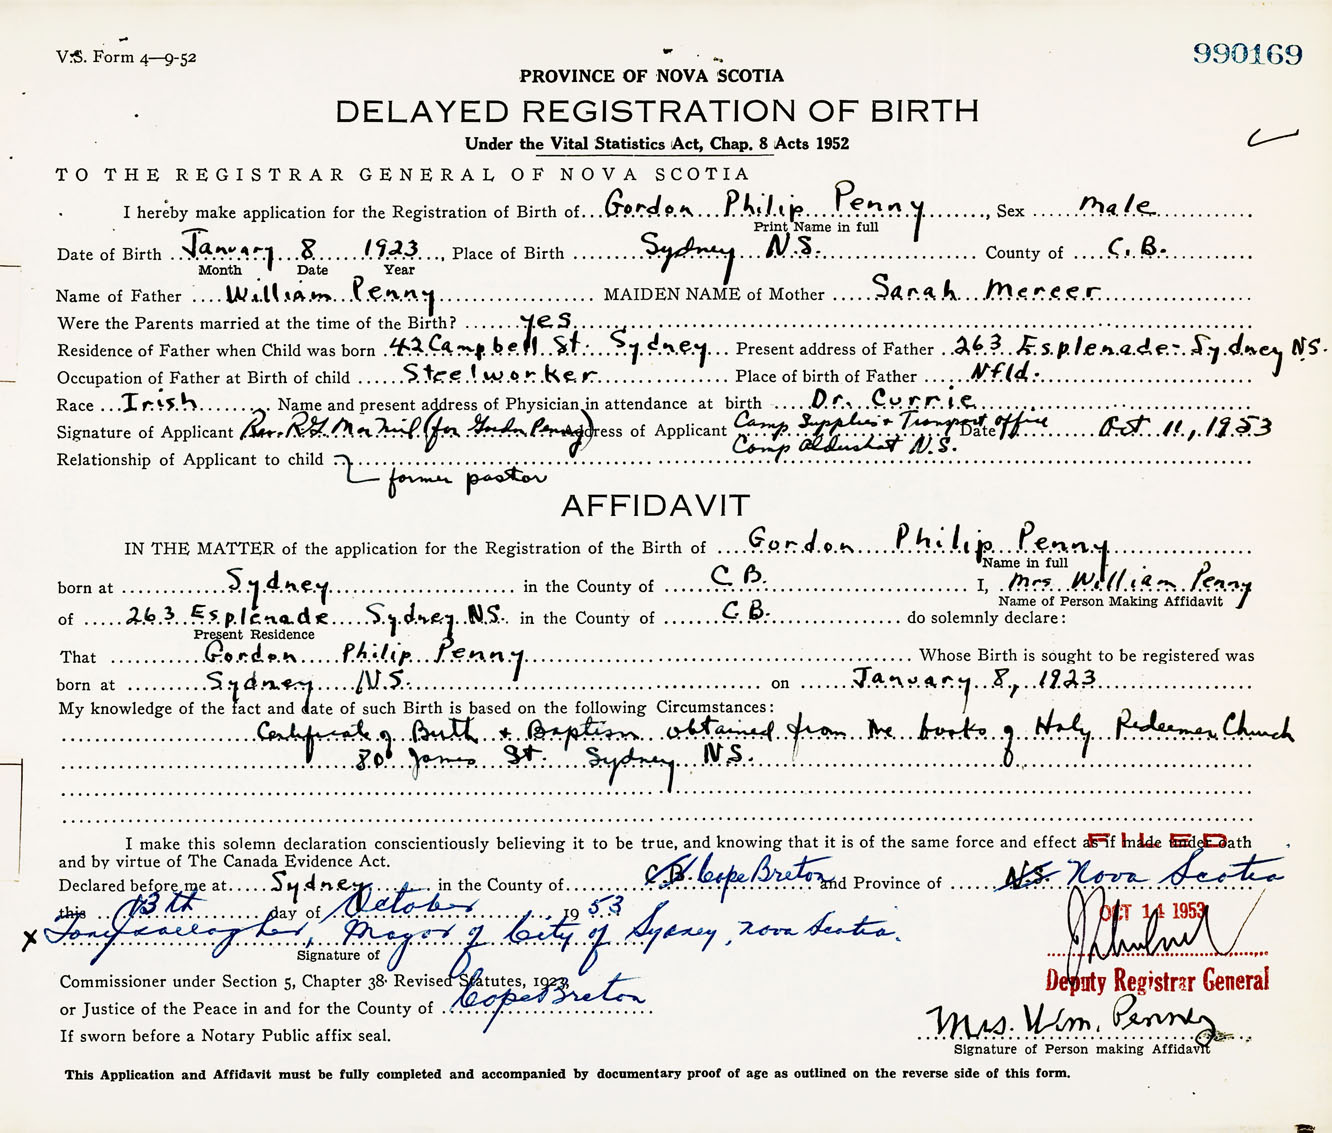 V.S. Form 4—9-52
990169
PROVINCE OF NOVA SCOTIA
DELAYED REGISTRATION OF BIRTH
Under the Vital Statistics Act, Chap. 8 Acts 1952
TO THE REGISTRAR GENERAL OF NOVA SCOTIA
I hereby make application for the Registration of Birth of Gordon Philip Penny, Sex male
Print Name in full
Date of Birth January 8 1923, Place of Birth Sydney N.S. County of C.B.
Month Date Year
Name of Father William Penny MAIDEN NAME of Mother Sarah Mercer
Were the Parents married at the time of the Birth? yes
Residence of Father when Child was born 42 Campbell St. Sydney Present address of Father 263 Esplenade - Sydney N.S.
Occupation of Father at Birth of child Steelworker Place of birth of Father Nfld.
Race Irish Name and present address of Physician in attendance at birth Dr. Currie
Signature of Applicant Rev. R.G. MacNeil (for Gordon Penny) Address of Applicant Camp Supplies & Transport Office Date Oct 11, 1953
Camp Aldershot N.S.
Relationship of Applicant to child
former pastor
AFFIDAVIT
IN THE MATTER of the application for the Registration of the Birth of Gordon Philip Penny
Name in full
born at Sydney in the County of C B. I, Mrs William Penny
Name of Person Making Affidavit
of 263 Esplenade Sydney N.S. in the County of C.B. do solemnly declare:
Present Residence
That Gordon Philip Penny Whose Birth is sought to be registered was
born at Sydney N.S. on January 8, 1923
My knowledge of the fact and date of such Birth is based on the following Circumstances:
Certificate of Birth & Baptism obtained from the books of Holy Redeemer Church
80 James St. Sydney N.S.
I make this solemn declaration conscientiously believing it to be true, and knowing that it is of the same force and effect as if made under oath
FILED
and by virtue of The Canada Evidence Act.
Declared before me at Sydney in the County of C.B. Cape Breton and Province of N.S. Nova Scotia
this 13th day of October 1953
OCT 14 1953
x Gallagher, Mayor of City of Sydney, Nova Scotia.
Signature of
Deputy Registrar General
Commissioner under Section 5, Chapter 38. Revised Statutes, 1923,
or Justice of the Peace in and for the County of Cape Breton
Mrs. Wm. Penney
If sworn before a Notary Public affix seal.
Signature of Person making Affidavit
This Application and Affidavit must be fully completed and accompanied by documentary proof of age as outlined on the reverse side of this form.